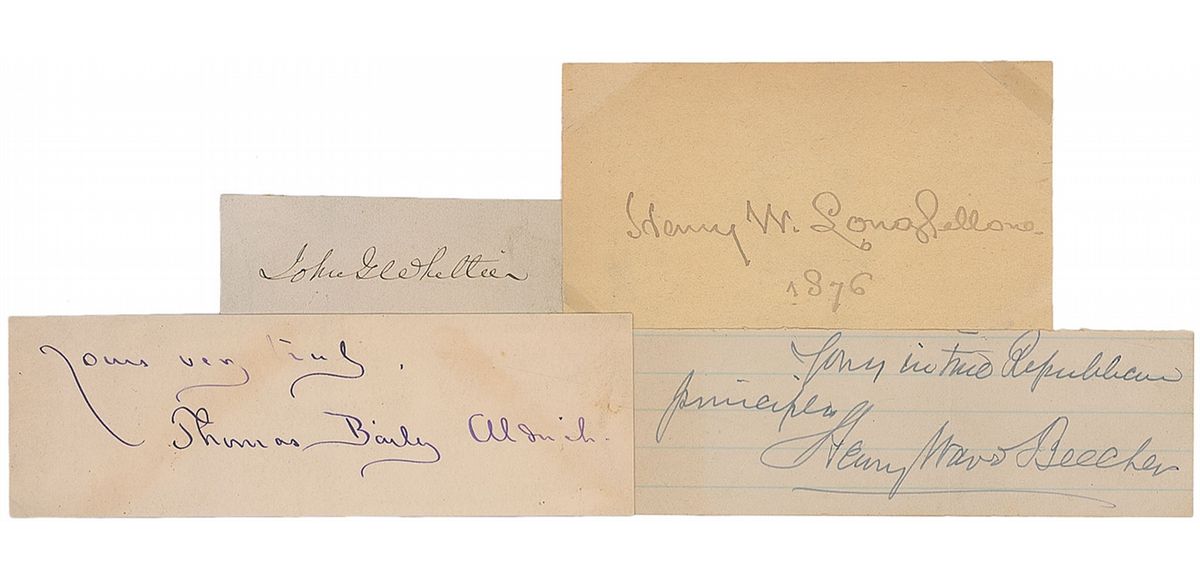 Henry W. Longfellow
1876
John G Whittier
Yours very truly,
Thomas Bailey Aldrich.
Yours in true Republican
principles
Henry Ward Beecher